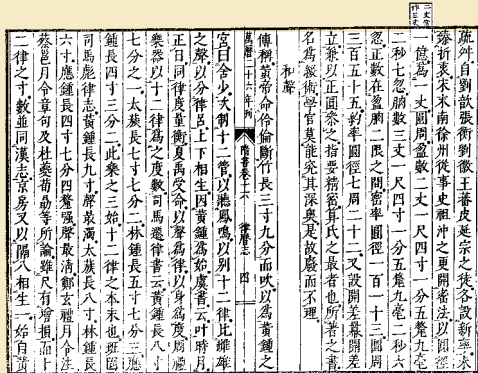 二丈當作三丈
疏舛自劉歆張衡劉徽王蕃皮延宗之徒各設新率未
臻折衷宋末南徐州從事史祖沖之更開密法以圓徑
一億爲一丈圓周盈數二丈一尺四寸一分五釐九毫
二秒七忽朒數三丈一尺四寸一分五釐九毫二秒六
忽正數在盈朒二限之間密率圓徑一百一十三圓周
三百五十五約率圓徑七周二十二又設開差冪開差
立兼以正圓參之指要精密筭氏之最者也所著之書
名爲綴術學官莫能究其深奧是故廢而不理
和聲
傳稱黃帝命伶倫斷竹長三寸九分而吹以爲黃鍾之
萬曆二十六年刊 隋書卷十六 律曆志 四
宮曰含少次制十二管以聽鳳鳴以別十二律比雌雄
之聲以分律呂上下相生因黃鍾爲始虞書云叶時月
正日同律度量衡夏禹受命以聲爲律以身爲度周禮
樂器以十二律爲之度數司馬遷律書云黃鍾長八寸
七分之一太蔟長七寸七分二林鍾長五寸七分三應
鍾長四寸三分二此樂之三始十二律之本末也班固
司馬彪律志黃鍾長九寸聲最濁太蔟長八寸林鍾長
六寸應鍾長四寸七分四釐强聲最清鄭玄禮月令注
蔡邕月令章句及杜夔荀勗等所論雖尺有增損而十
二律之寸數並同漢志京房又以隔八相生一始自黃